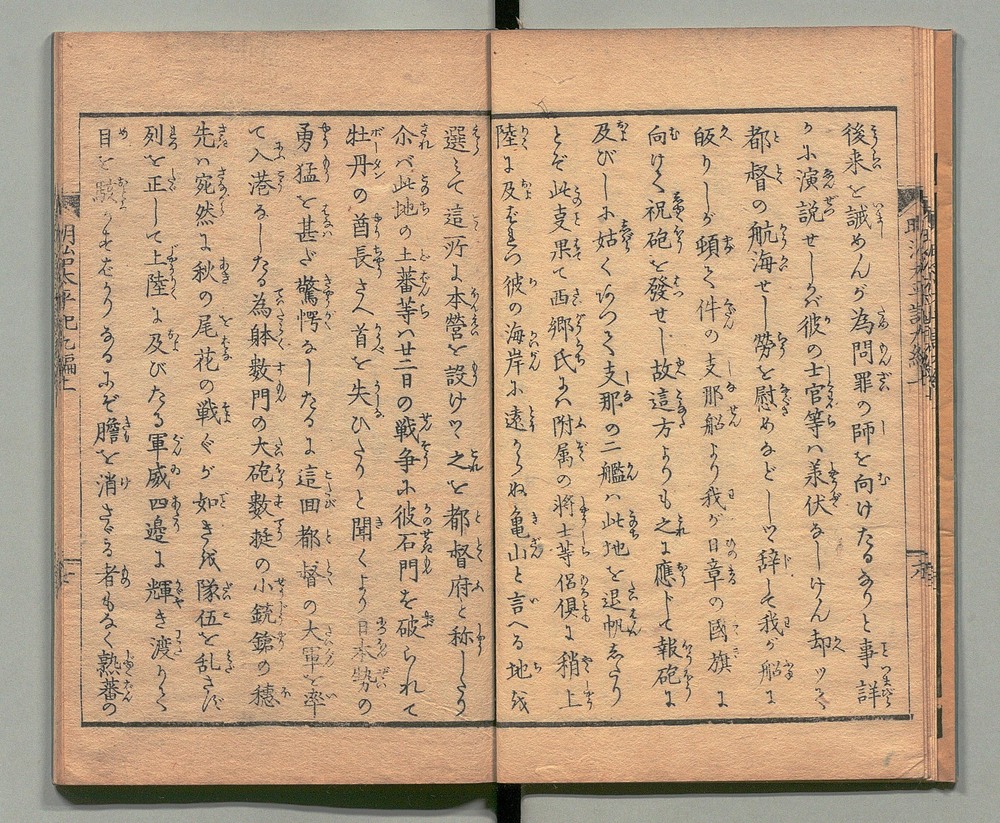 後来を誡めんが為問罪の師を向けたるなりと事詳
かに演説せしかば彼の士官等ハ承伏なしけん却ッて
都督の航海せし労を慰めなどしツヽ辞して我が船に
皈りしが頓て件の支那船より我が日章の國旗に
向けて祝砲を發せし故這方よりも之に應じて報砲に
及びしに姑くありて支那の二艦ハ此地を退帆なしたり
とぞ此支果て西郷氏にハ附属の將士等侶倶に稍上
陸に及ばれつ彼の海岸に遠からぬ亀山と言へる地を
選ミて這所に本營を設けツヽ之を都督府と称したり
尒バ此地の土蕃等ハ廿二日の戦争に彼石門を破られて
牡丹の酋長さへ首を失ひたりと聞くより日本勢の
勇猛を甚だ驚愕なしたるに這回都督の大軍を率
て入港なしたる為躰数門の大砲数挺の小銃銕の穂
先ハ宛然に秋の尾花の戦ぐが如きを隊伍を乱さず
列を正して上陸に及びたる軍威四邊に輝き渡りて
目を駭かせばかりなるにぞ膽を消さゞる者もなく熟蕃の
明治太平記九編上